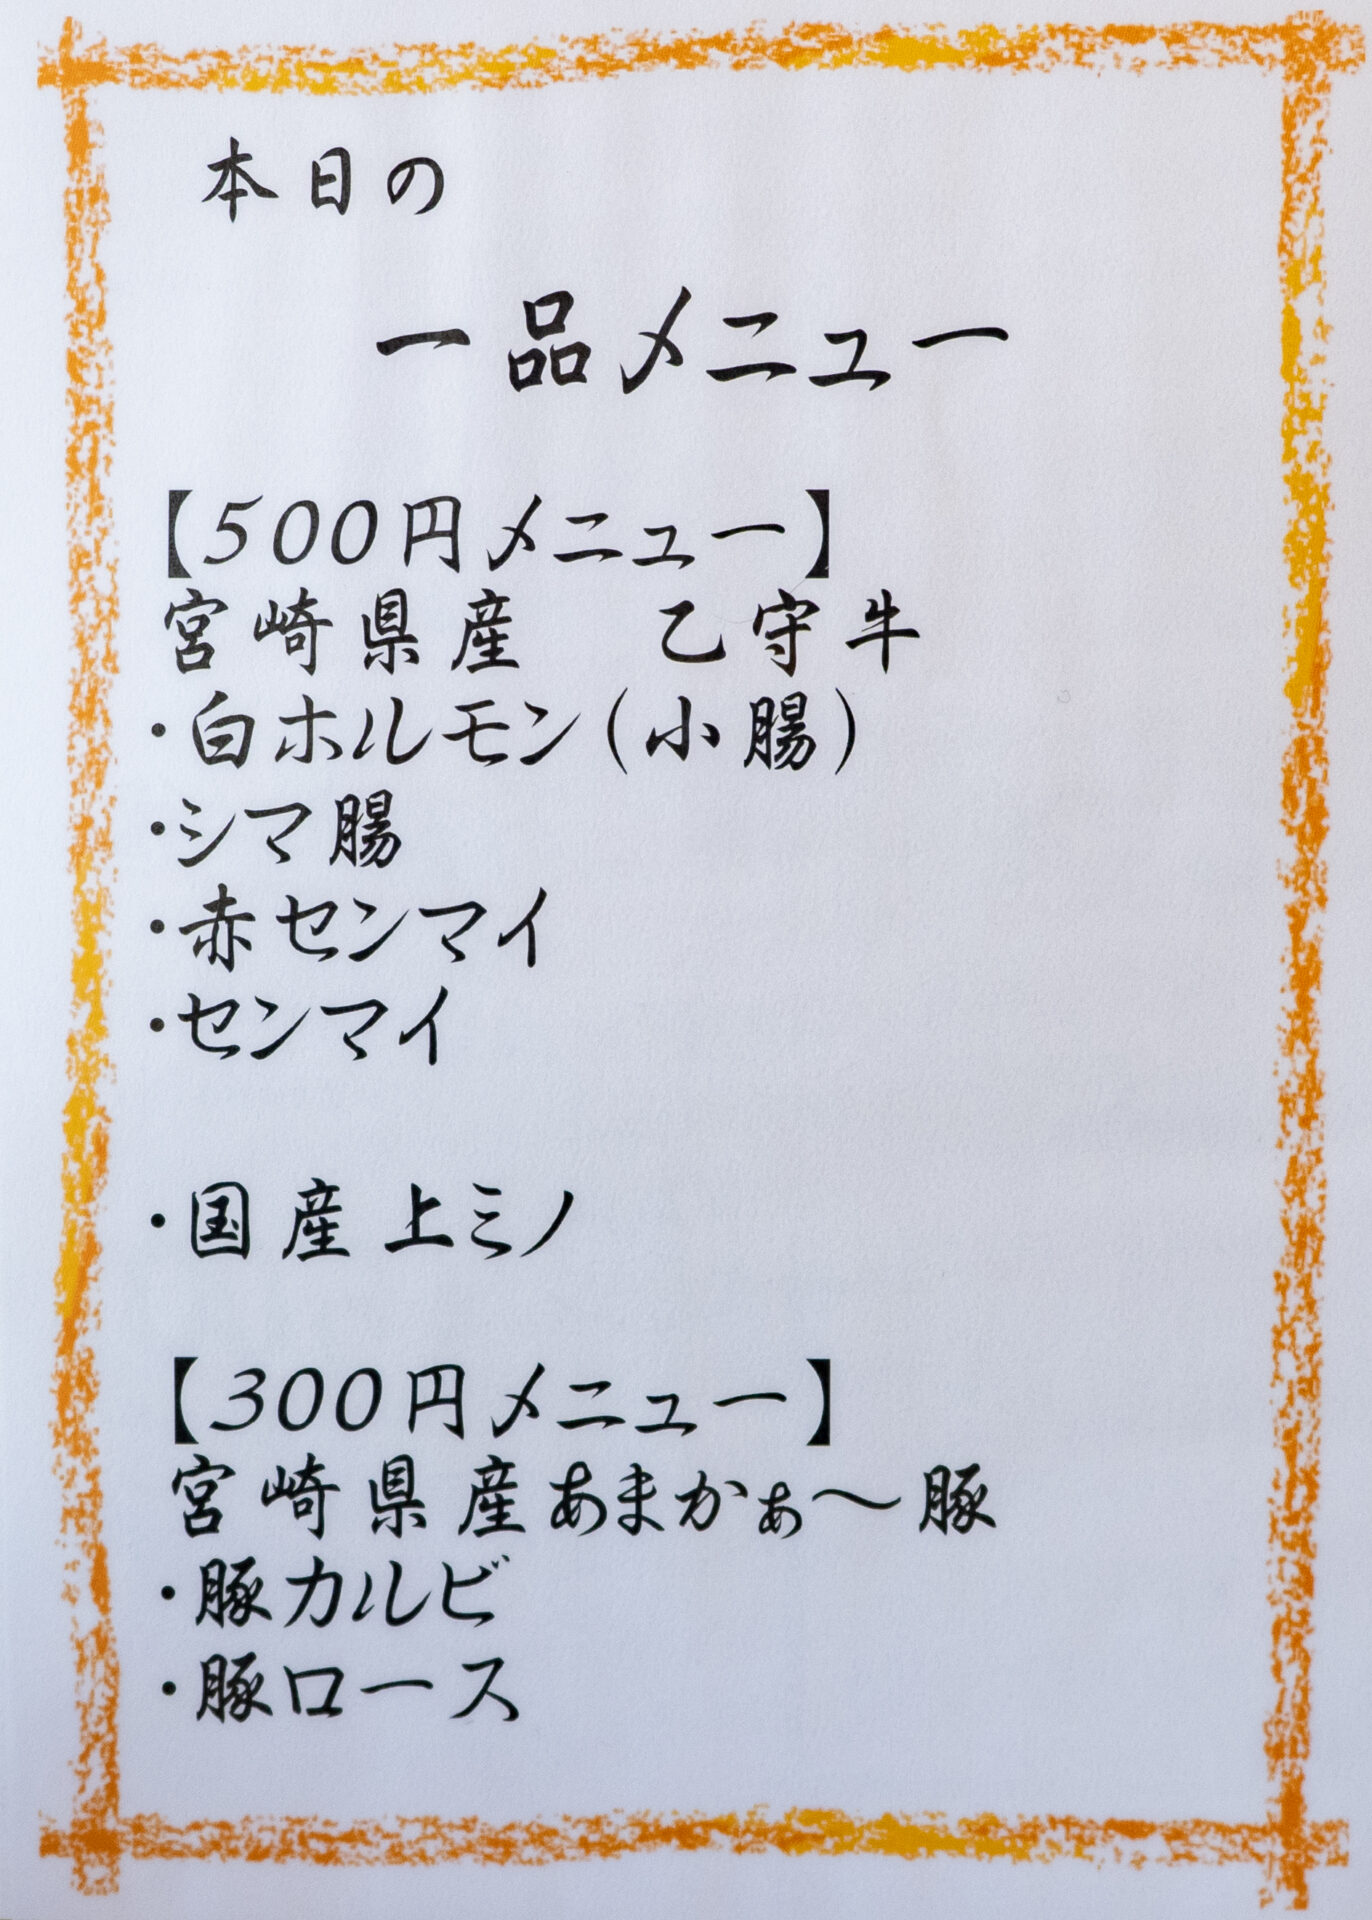 本日の
一品メニュー
【500円メニュー】
宮崎県産　乙守牛
・白ホルモン(小腸)
・シマ腸
・赤センマイ
・センマイ
・国産上ミノ
【300円メニュー】
宮崎県産あまかぁ～豚
・豚カルビ
・豚ロース